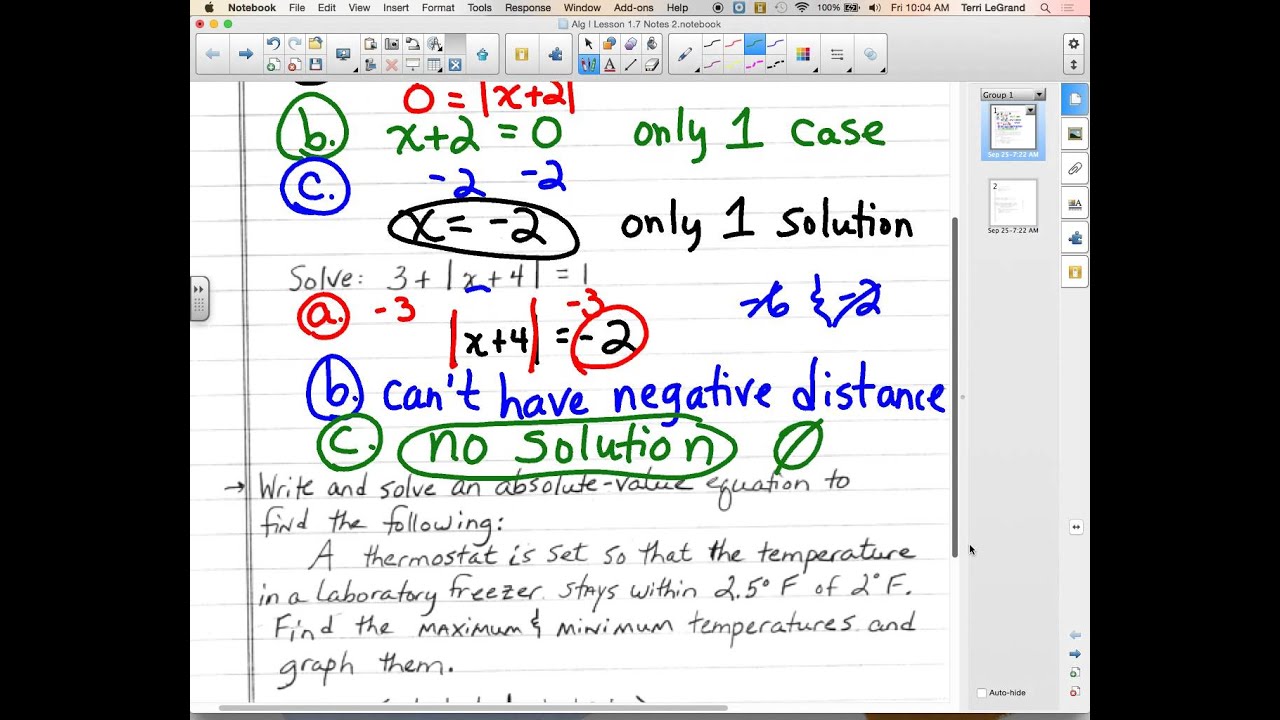 Notebook File Edit View Insert Format Tools Response Window Add-ons Help 100% Fri 10:04 AM Terri LeGrand
Alg I Lesson 1.7 Notes 2.notebook
Group 1
1
Sep 25-7:22 AM
2
Sep 25-7:22 AM
0 = |x+2|
b. x+2 = 0 only 1 case
c. -2 -2
x = -2 only 1 solution
Solve: 3 + |x + 4| = 1
a. -3 -3
|x+4| = -2
-6 & -2
b. can't have negative distance
c. no solution ∅
→ Write and solve an absolute-value equation to
find the following:
A thermostat is set so that the temperature
in a laboratory freezer stays within 2.5° F of 2° F.
Find the maximum & minimum temperatures and
graph them.
Auto-hide